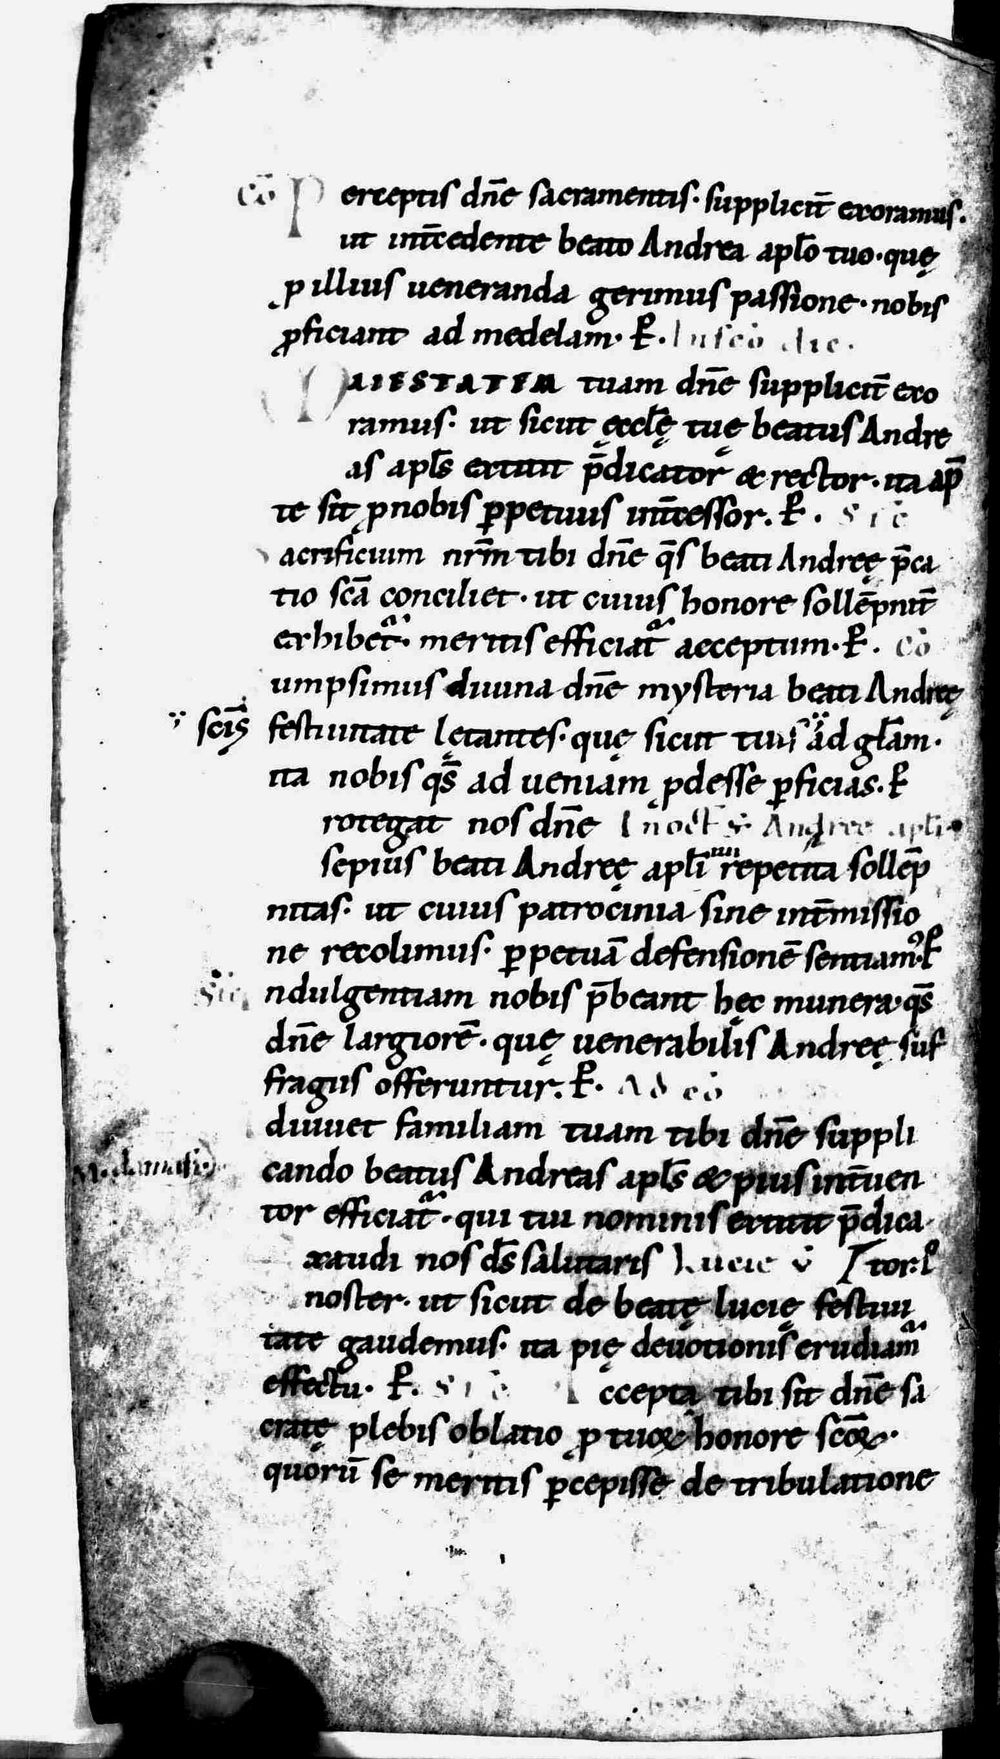 cō Perceptis dn̄e sacramentis· supplicit̄ exoramus·
ut int̄cedente beato Andrea aplo̅ tuo· quę
ꝓ illius ueneranda gerimus passione· nobis
ꝓficiant ad medelam· ꝑ. In sc̄o die·
MAIESTATEM tuam dn̄e supplicit̄ exo
ramus· ut sicut ęccl̄ę tuę beatus Andre
as apl̄s extitit p̄dicator & rector· ita ap̄
te sit ꝓ nobis ꝑpetuus int̄cessor. ꝑ. Sēc
acrificium nr̄m tibi dn̄e q̄s beati Andreę p̄ca
tio sc̄a conciliet· ut cuius honore sollēpnit̄
exhibetᷓ· meritis efficiatᷓ acceptum· ꝑ. cō
umpsimus diuina dn̄e mysteria beati Andreę
scīs festiuitate lętantes· quę sicut tuis ad gl̄am·
ita nobis q̄s ad ueniam ꝓdesse ꝑficias· ꝑ
rotegat nos dn̄e In oct̄ S· Andree apl̄i
sepius beati Andreę apl̄i repetita sollēp
nitas· ut cuius patrocinia sine int̄missio
ne recolimus· ꝑpetuā defensionē sentiamꝰ ꝑ
Sēc ndulgentiam nobis p̄beant hęc munera q̄s
dn̄e largiorē· quę uenerabilis Andreę suf
fragiis offeruntur. ꝑ. Ad cō
diuuet familiam tuam tibi dn̄e suppli
cando beatus Andreas apl̄s & pius int̄uen
tor efficiatᷓ· qui tui nominis extitit p̄dica
xaudi nos d̄s salutaris Lucie v̄ tor. ꝑ
noster· ut sicut de beatę lucię festiui
tate gaudemus· ita pię deuotionis erudiamᷓ
effectu· ꝑ. Sēc ccepta tibi sit dn̄e sa
cratę plebis oblatio ꝓ tuoꝝ honore sc̄oꝝ·
quorū se meritis ꝑcepisse de tribulatione